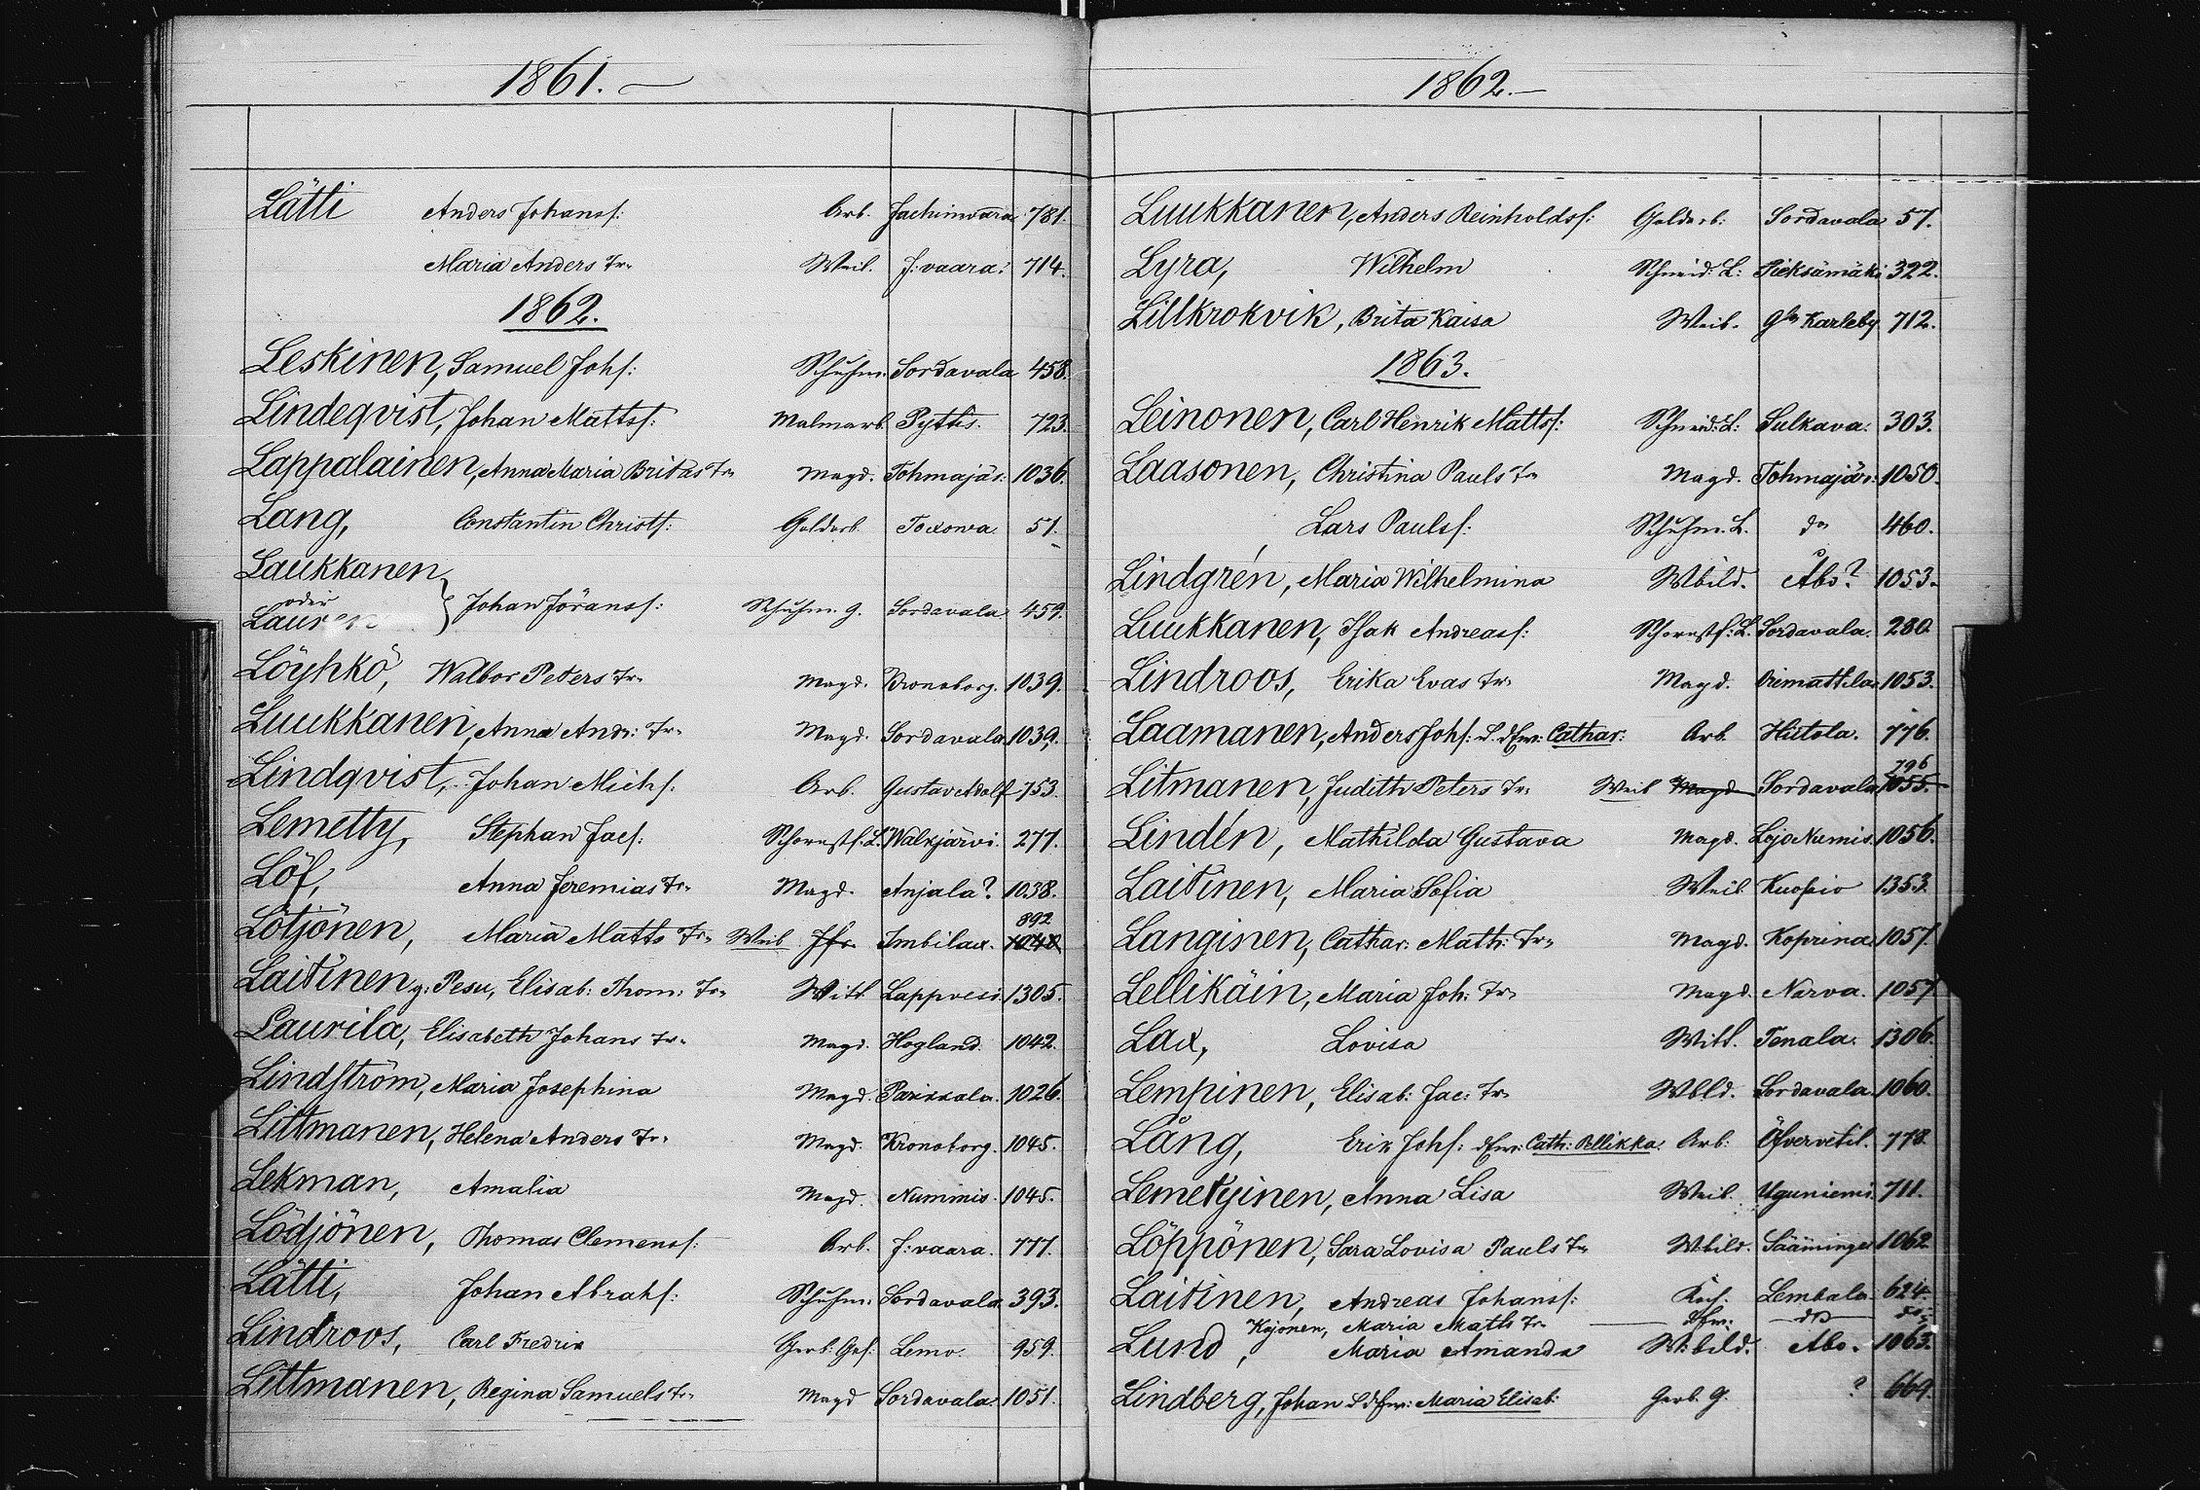 1861.
Lätti Anders Johanss: Arb. Jachimvara 781.
Maria Anders Tr. Weib. J:vaara: 714.
1862.
Leskinen, Samuel Johs: Schuhm. Sordavala 458.
Lindeqvist, Johan Mattss: Malmarb. Pyttis. 723.
Lappalainen, Anna Maria Britas Tr. Magd. Tohmajär: 1036.
Lang, Constantin Christs: Goldarb. Toxowa. 51.
Laukkanen
oder
Johan Jöranss: Schuhm. g. Sordavala 459.
Löyhkö, Walbor Peters Tr. Magd. Kronoborg. 1039.
Luukkanen, Anna Andr: Tr. Magd. Sordavala. 1039.
Lindqvist, Johan Michs. Arb. Gustav Adolf 753.
Lemetty, Stephan Jacs: Schornstf. L. Walkjärvi. 277.
Löf, Anna Jeremias Tr. Magd. Anjala? 1038.
892
Lötjönen, Maria Matts Tr. Weib Imbilax.
Laitinen g: Pesu, Elisab: Thom: Tr. Witt. Lappvesi. 1305.
Laurila, Elisabeth Johans Tr. Magd. Hogland. 1042.
Lindström, Maria Josephina Magd. Parikkala. 1026.
Littmanen, Helena Anders Tr. Magd. Kronoborg. 1045.
Lekman, Amalia Magd. Nummis. 1045.
Lödjönen, Thomas Clemenss: Arb. J:vaara. 777.
Lätti, Johan Abrahs: Schuhm. Sordavala. 393.
Lindroos, Carl Fredrik Gerb: Ges: Lemo. 959.
Littmanen, Regina Samuels Tr. Magd Sordavala. 1051.
1862.
Luukkanen, Anders Reinholdss: Goldarb: Sordavala 57.
Lyra, Wilhelm Schneid: L: Pieksämäki 322.
Lillkrokvik, Brita Kaisa Weib. Gla Karleby 712.
1863.
Leinonen, Carl Henrik Mattss: Schneid: L: Sulkava: 303.
Laasonen, Christina Pauls Tr Magd. Tohmajär: 1050.
Lars Paulss: Schuhm. L. do 460.
Lindgrén, Maria Wilhelmina Wbild. Åbo? 1053.
Luukkanen, Isak Andreass: Schornstf: L. Sordavala. 280
Lindroos, Erika Evas Tr. Magd. Orimattila. 1053.
Laamanen, Anders Johs: Cathar: Arb. Hiitola. 776.
796
Litmanen, Judith Peters Tr. Weib Magd Sordavala 1055.
Lindén, Mathilda Gustava Magd. Lojo Numis. 1056.
Laitinen, Maria Sofia Weib. Kuopio 1353.
Langinen, Cathar: Math: Tr. Magd. Koprina. 1057.
Lellikäin, Maria Joh: Tr. Magd. Narva. 1057.
Lax, Lovisa Witt. Tenala. 1306.
Lempinen, Elisab: Jac: Tr. Wbld. Sordavala. 1060.
Lång, Erik Johs: Cath: Pellikka. Arb: Öfvervetil. 778.
Lemetyinen, Anna Lisa Weib. Uguniemi. 711.
Löppönen, Sara Lovisa Pauls Tr Wbild. Sääminge 1062
Laitinen, Andreas Johanss: Koch. Lembala. 624.
Kojonen, Maria Matts Tr. do do
Lund, Maria Amanda Wbild. Åbo. 1063.
Lindberg, Johan Maria Elisab: Gerb. G. ? 669.